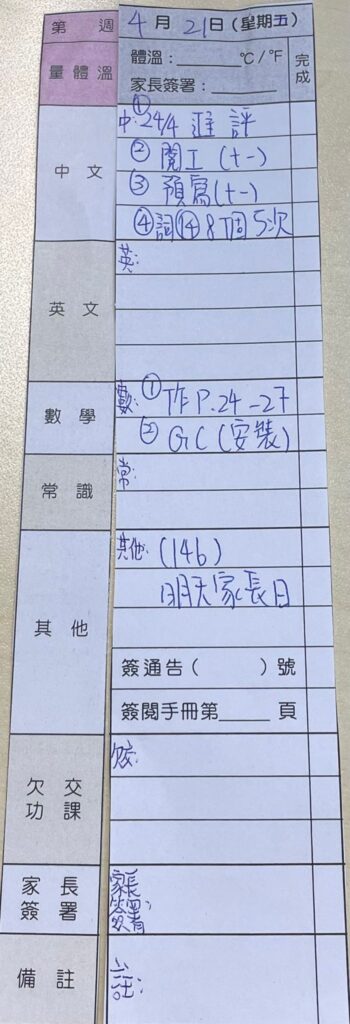 第 週 4月21日(星期五)
量體溫 體溫:______℃/℉ 完成
家長簽署:______
中文 中:①24/4 進評
②閱工(十一)
③預寫(十一)
④詞⑭8個5次
英文 英:
數學 數:①作P.24-27
②GC(安裝)
常識 常:
其他 其他:(146)
明天家長日
簽通告( )號
簽閱手冊第____頁
欠交功課 欠交:
家長簽署 家長簽署:
備註 註: